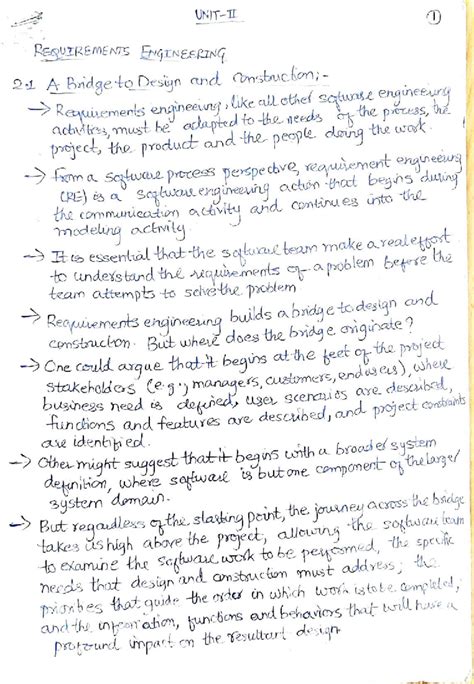 UNIT-II
1
REQUIREMENTS ENGINEERING
2.1 A Bridge to Design and Construction;-
→ Requirements engineering, like all other software engineering
activities, must be adapted to the needs of the process, the
project, the product and the people doing the work.
→ From a software process perspective, requirement engineering
(RE) is a software engineering action that begins during
the communication activity and continues into the
modeling activity
→ It is essential that the software team make a real effort
to understand the requirements of a problem before the
team attempts to solve the problem
→ Requirements engineering builds a bridge to design and
construction. But where does the bridge originate?
→ One could argue that it begins at the feet of the project
stakeholders (e.g; managers, customers, endusers), where
business need is defined, user scenarios are described,
functions and features are described, and project constraints
are identified.
→ Other might suggest that it begins with a broader system
definition, where software is but one component of the larger
system domain.
→ But regardless of the starting point, the journey across the bridge
takes us high above the project, allowing the software team
to examine the software work to be performed, the specific
needs that design and construction must address; the
priorities that guide the order in which work is to be completed;
and the information, functions and behaviors that will have a
profound impact on the resultant design